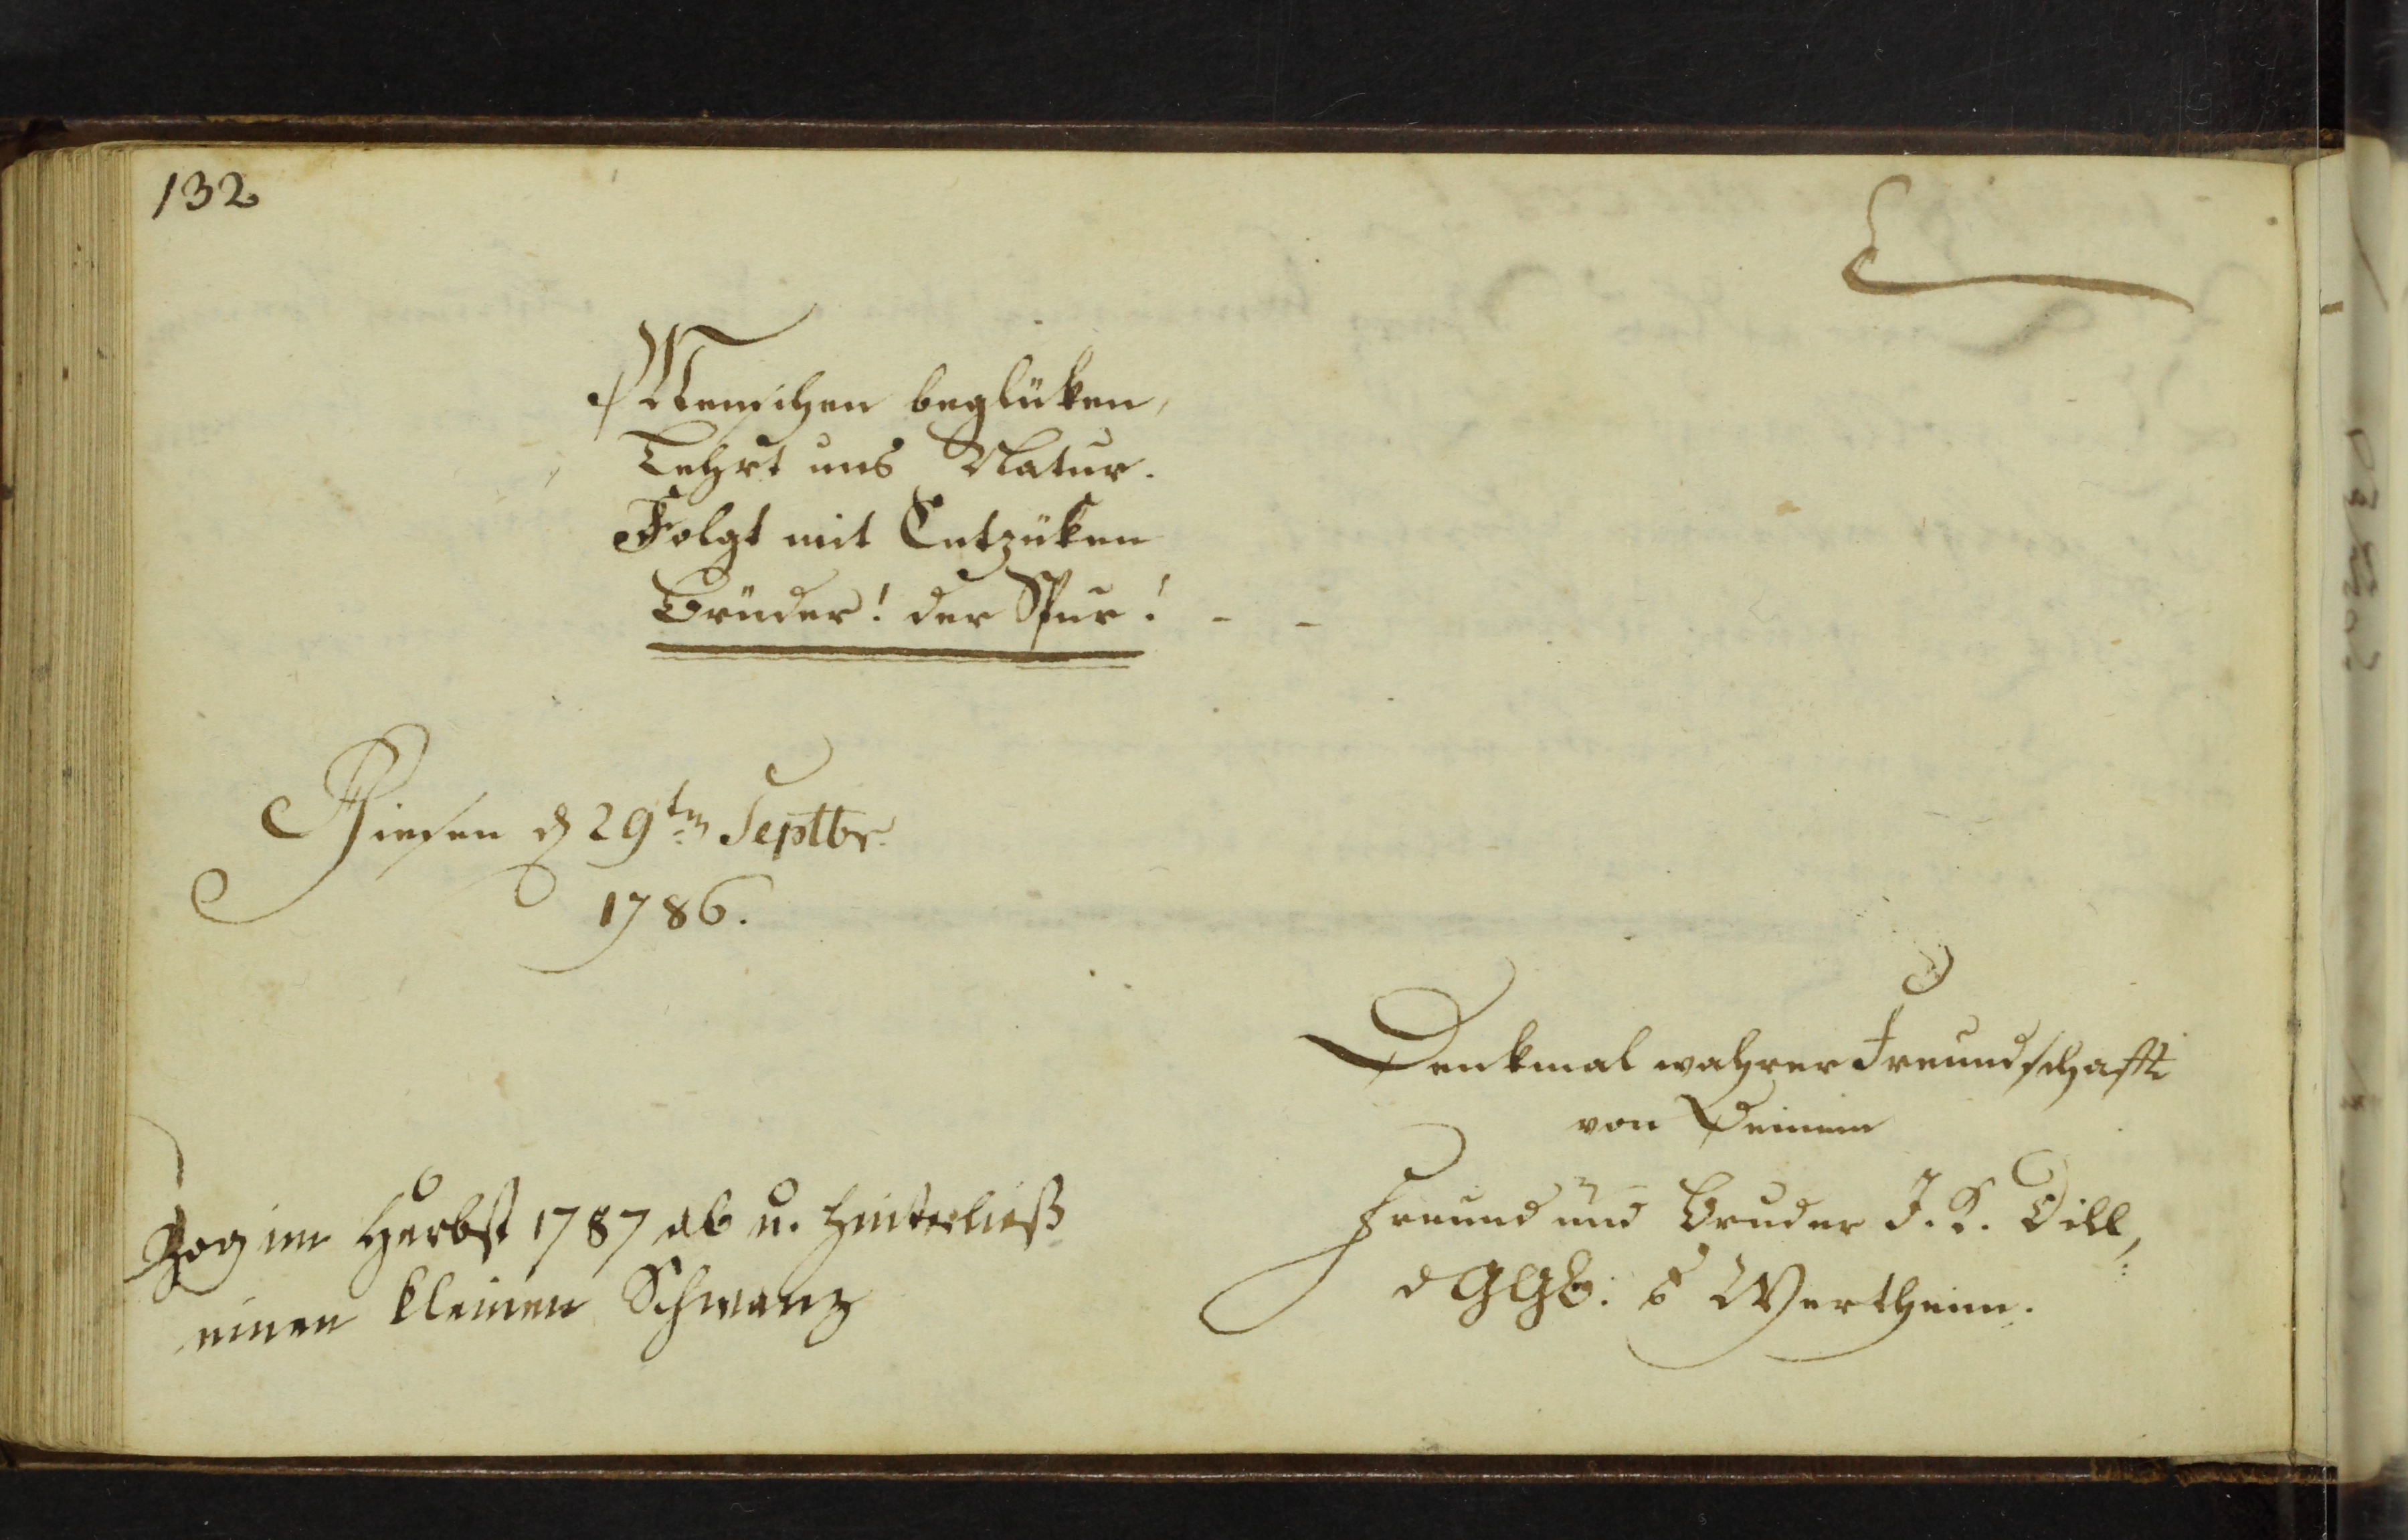 132
Menschen beglüken,
Lehrt uns Natur.
Folgt mit Entzüken
Brüder! der Spur! - -
Giesen d 29ten Septbr.
1786.
Denkmal wahrer Freundschafft
von Deinem
Freund und Bruder J. K. Dill,
d GGb: Wertheim.
Zog im Herbst 1787 ab u. hinterließ
einen kleinen Schwanz